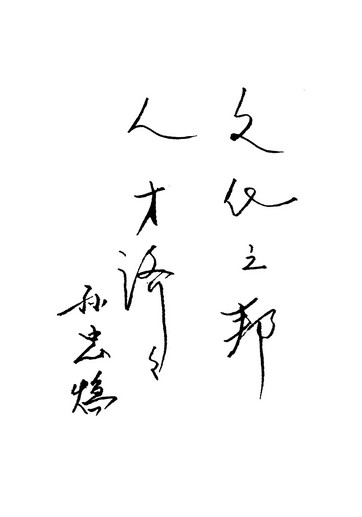 文化之邦
人才济々
孙忠焕